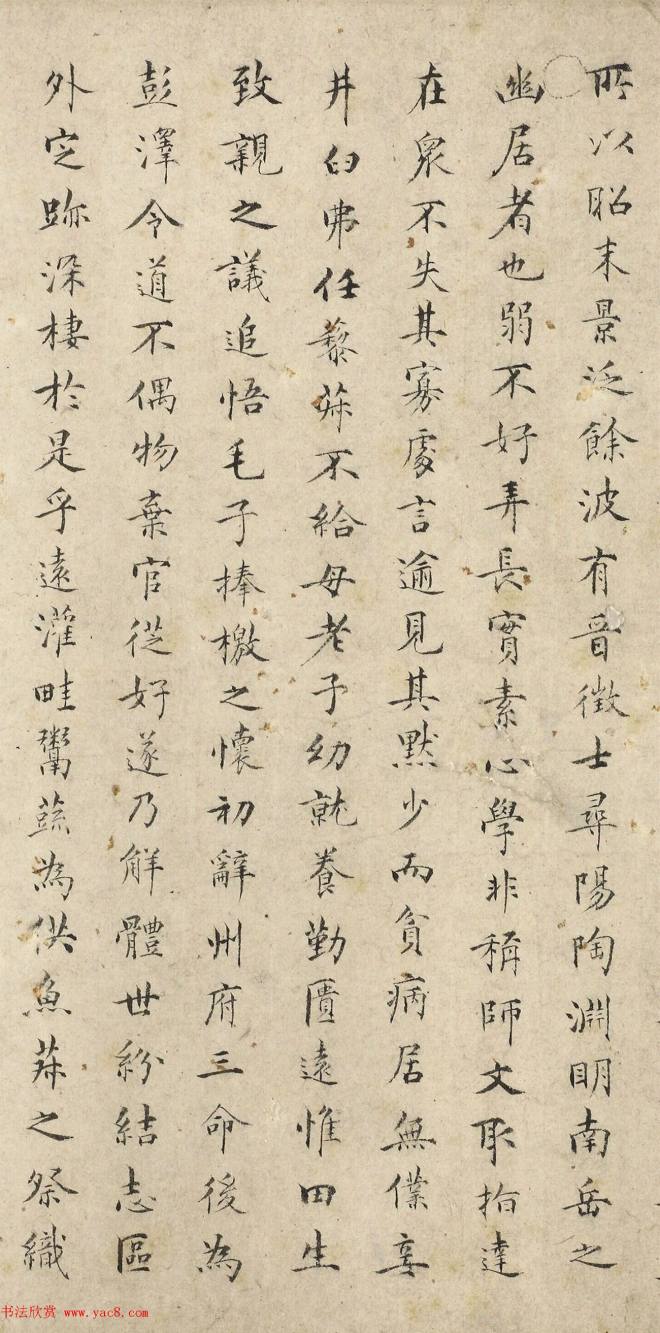 所以昭末景泛餘波有晉徵士尋陽陶淵明南岳之
幽居者也弱不好弄長實素心學非稱師文取指達
在衆不失其寡處言逾見其默少而貧病居無僕妾
井臼弗任藜菽不給母老子幼就養勤匱遠惟田生
致親之議追悟毛子捧檄之懷初辭州府三命後為
彭澤令道不偶物棄官從好遂乃解體世紛結志區
外定跡深棲於是乎遠灌畦鬻蔬為供魚菽之祭織
书法欣赏 www.yac8.com